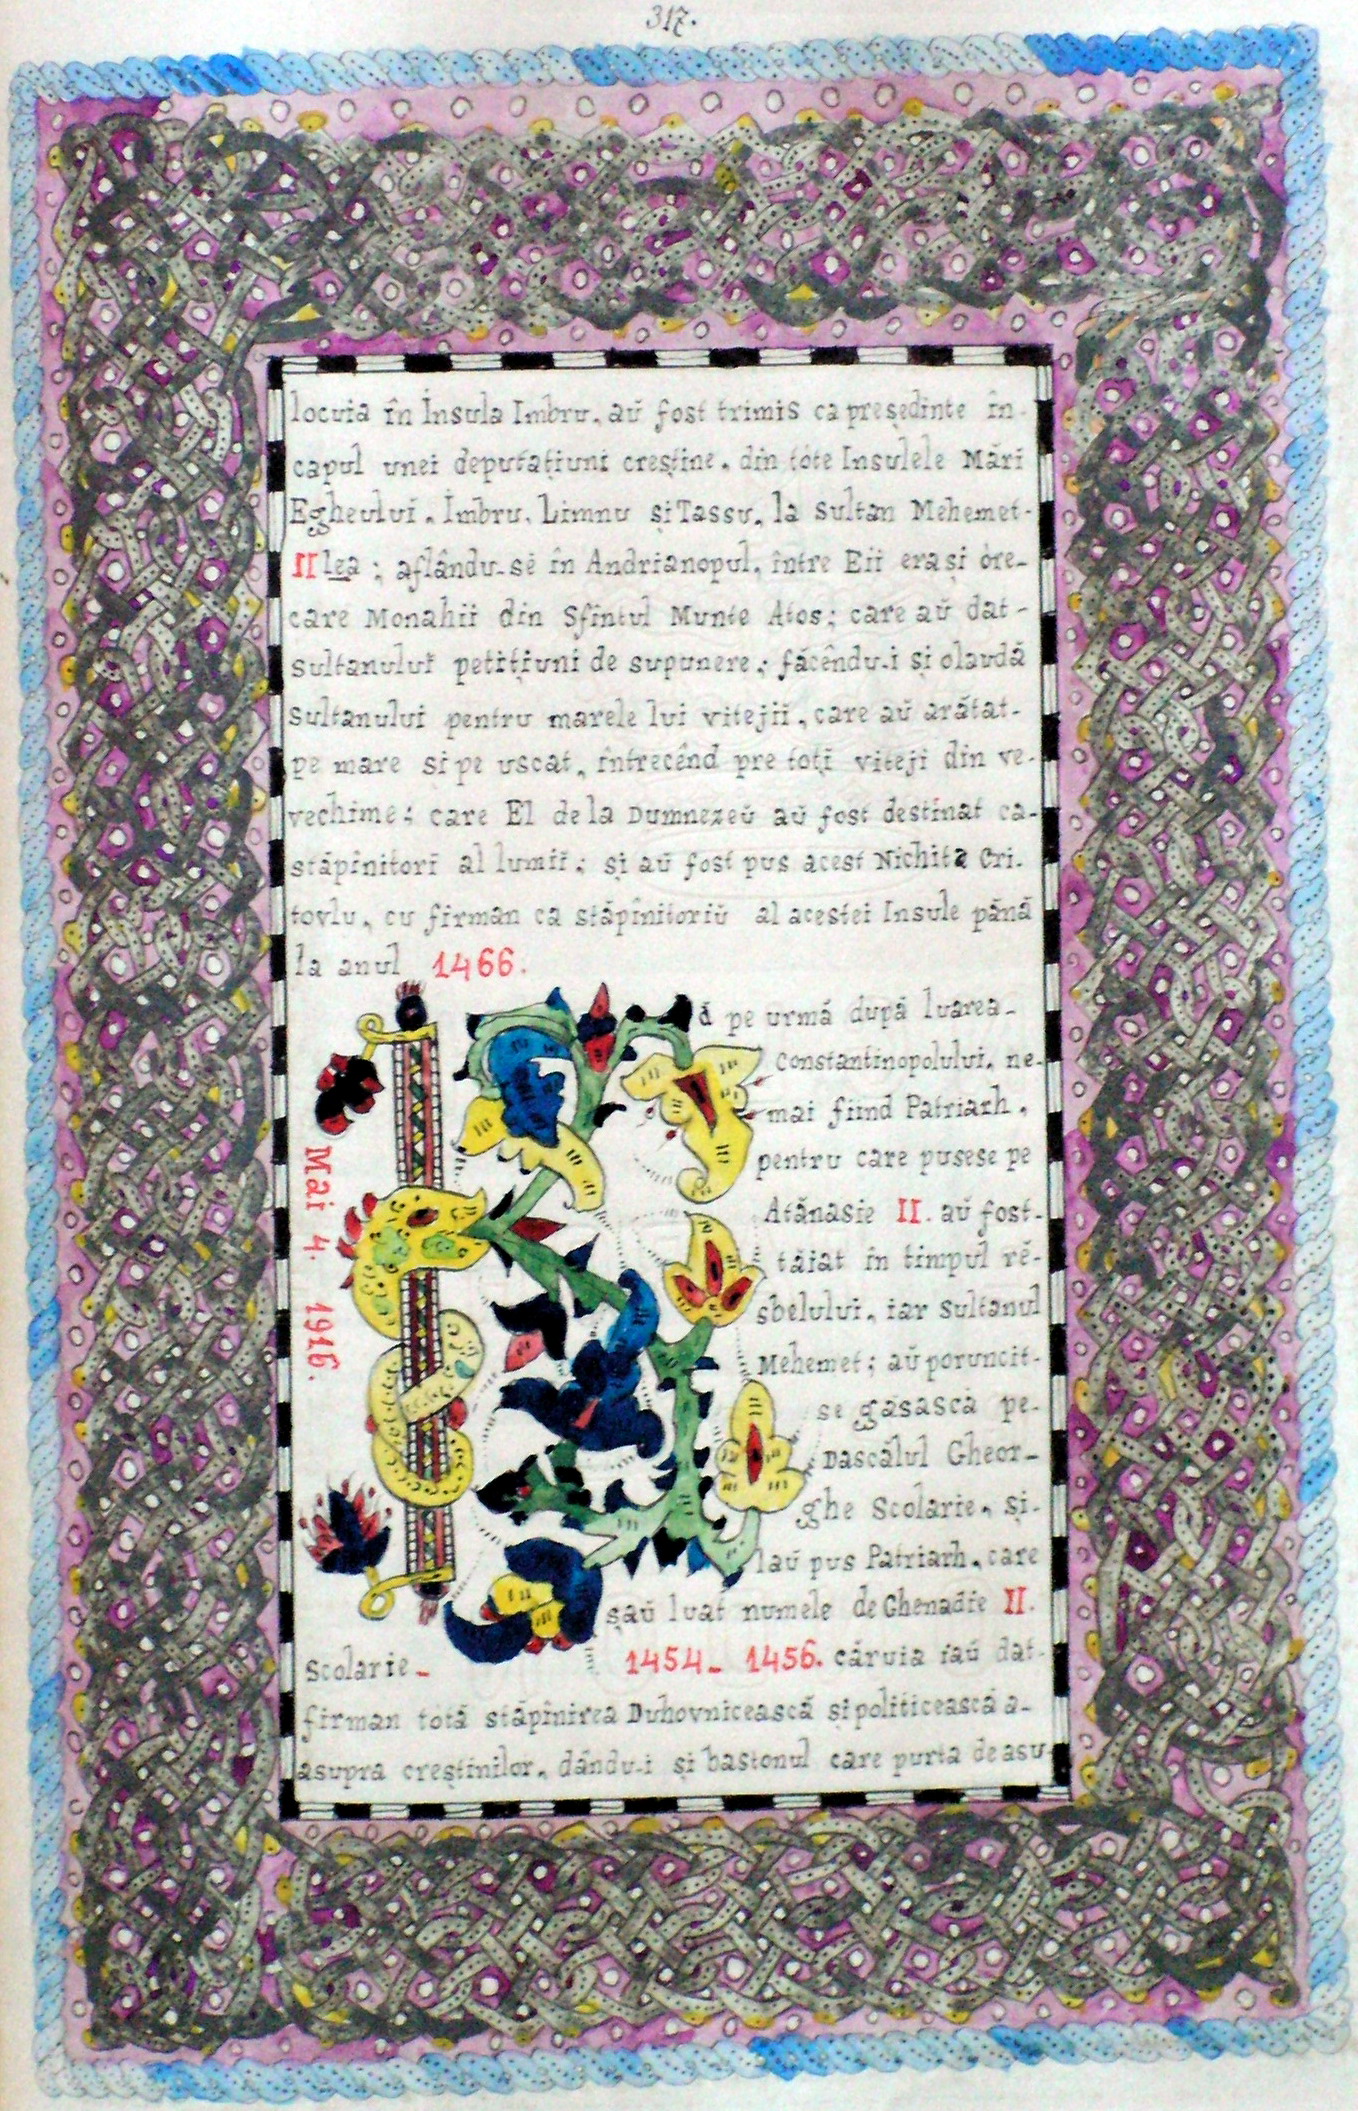 317.
locuia în Insula Imbru, aŭ fost trimis ca președinte în-
capul unei deputațiuni creștine, din tóte Insulele Mări
Egheuluĭ, Imbru, Limnu și Tassu, la sultan Mehemet-
II lea; aflându-sĕ în Andrianopul, între Eiĭ era și óre-
care Monahiĭ din Sfîntul Munte Atos; care aŭ dat-
sultanuluĭ petițiuni de supunere; făcêndu-i și olaudă
sultanului pentru marele lui vitejiĭ, care aŭ arătat-
pe mare si pe uscat, întrecênd pre toți viteji din ve-
vechime; care El de la Dumnezeŭ aŭ fost destinat ca-
stăpînitorĭ al lumiĭ; și aŭ fost pus acest Nichita Cri-
tovlu, cu firman ca stăpînitoriŭ al acestei Insule pănă
la anul 1466.
ă pe urmă după luarea-
Constantinopolului, ne-
mai fiind Patriarh,
pentru care pusese pe
Atănasie II. aŭ fost-
tăiat în timpul rĕ-
sbelului, iar sultanul
Mehemet; aŭ poruncit-
se găsască pe-
Dascălul Gheor-
ghe Scolarie, și-
laŭ pus Patriarh, care
șaŭ luat numele de Ghenadie II.
Scolarie- 1454- 1456. căruia iaŭ dat-
firman totă stăpînirea Duhovnicească și politicească a-
asupra creștinilor, dându-i și bastonul care purta de asu-
Mai 4. 1916.